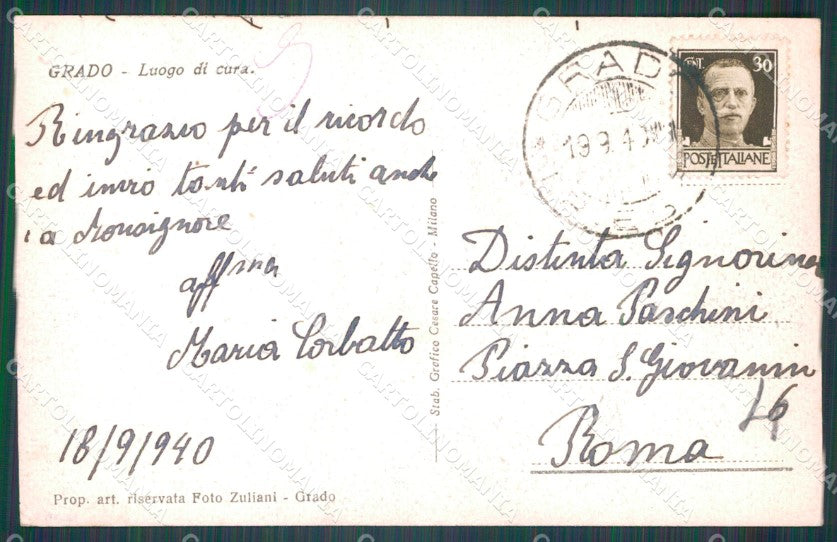 GRADO - Luogo di cura.
Ringrazio per il ricordo
ed invio tanti saluti anche
a Monsignore
aff.ma
Maria Corbatto
18/9/940
Prop. art. riservata Foto Zuliani - Grado
Stab. Grafico Cesare Capello - Milano
GRADO
19.9.40
CENT. 30
POSTE ITALIANE
Distinta Signorina
Anna Paschini
Piazza S. Giovanni
Roma
CARTOLINOMANIA